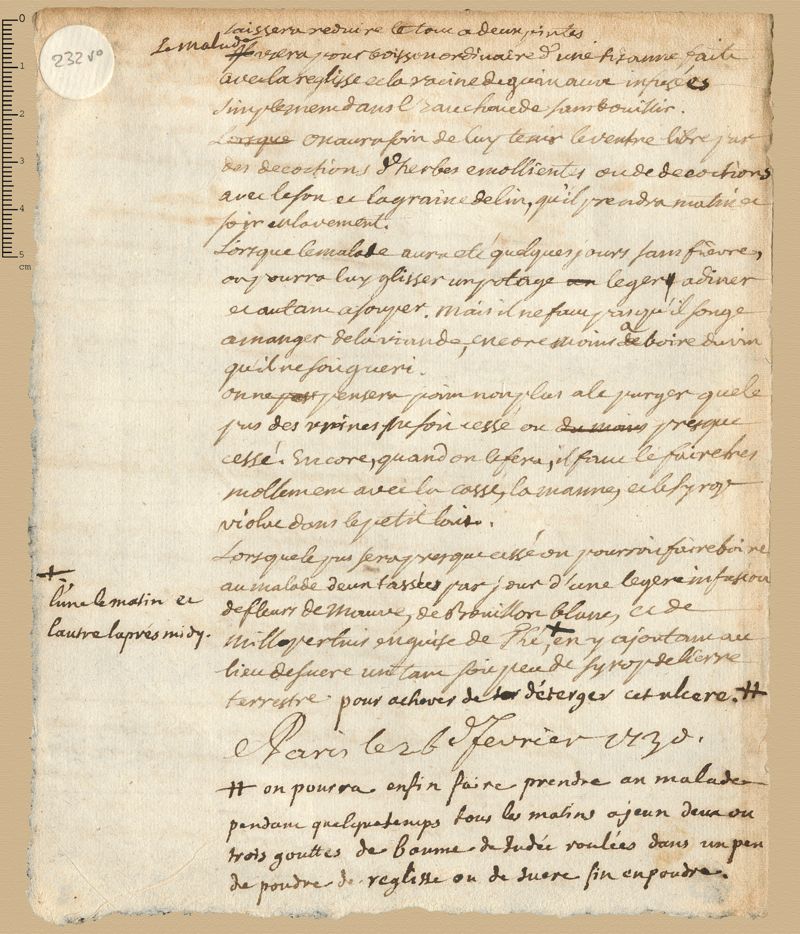 232 vo
laissera reduire le tout a deux pintes
Le malade usera pour boisson ordinaire d'une tisanne faite
avec la reglisse et la racine de guimauve infusées
simplement dans l'eau chaude sans bouillir.
Lorsque on aura soin de luy tenir le ventre libre par
des decoctions d'herbes emollientes ou de decoctions
avec le son et la graine de lin, qu'il prendra matin et
soir en lavement.
Lorsque le malade aura eté quelques jours sans fièvre,
on pourra luy glisser un potage leger a diner
et autant a souper. mais il ne faut pas qu'il songe
a manger de la viande, encore moins à boire du vin
qu'il ne soit gueri.
on ne pensera point non plus a le purger que le
pus des urines ne soit cessé ou du moins presque
cessé. Encore, quand on le fera, il faut le faire tres
mollement avec la casse, la manne, et le syrop
violat dans le petit lait.
Lorsque le pus sera presque cessé on pourroit faire boire
au malade deux tasses par jour d'une legere infusion
de fleurs de Mauve, de Bouillon blanc, et de
Millepertuis en guise de Thé, + en y ajoutant au
lieu de sucre un tant soit peu de syrop de lierre
terrestre pour achever de déterger cet ulcere. #
+
l'une le matin et
l'autre l'aprés midy.
A Paris le 26 février 1730.
# on pourra enfin faire prendre au malade
pendant quelque temps tous les matins a jeun deux ou
trois gouttes de baume de Judée roulées dans un peu
de poudre de reglisse ou de sucre fin en poudre.
0
1
2
3
4
5
cm